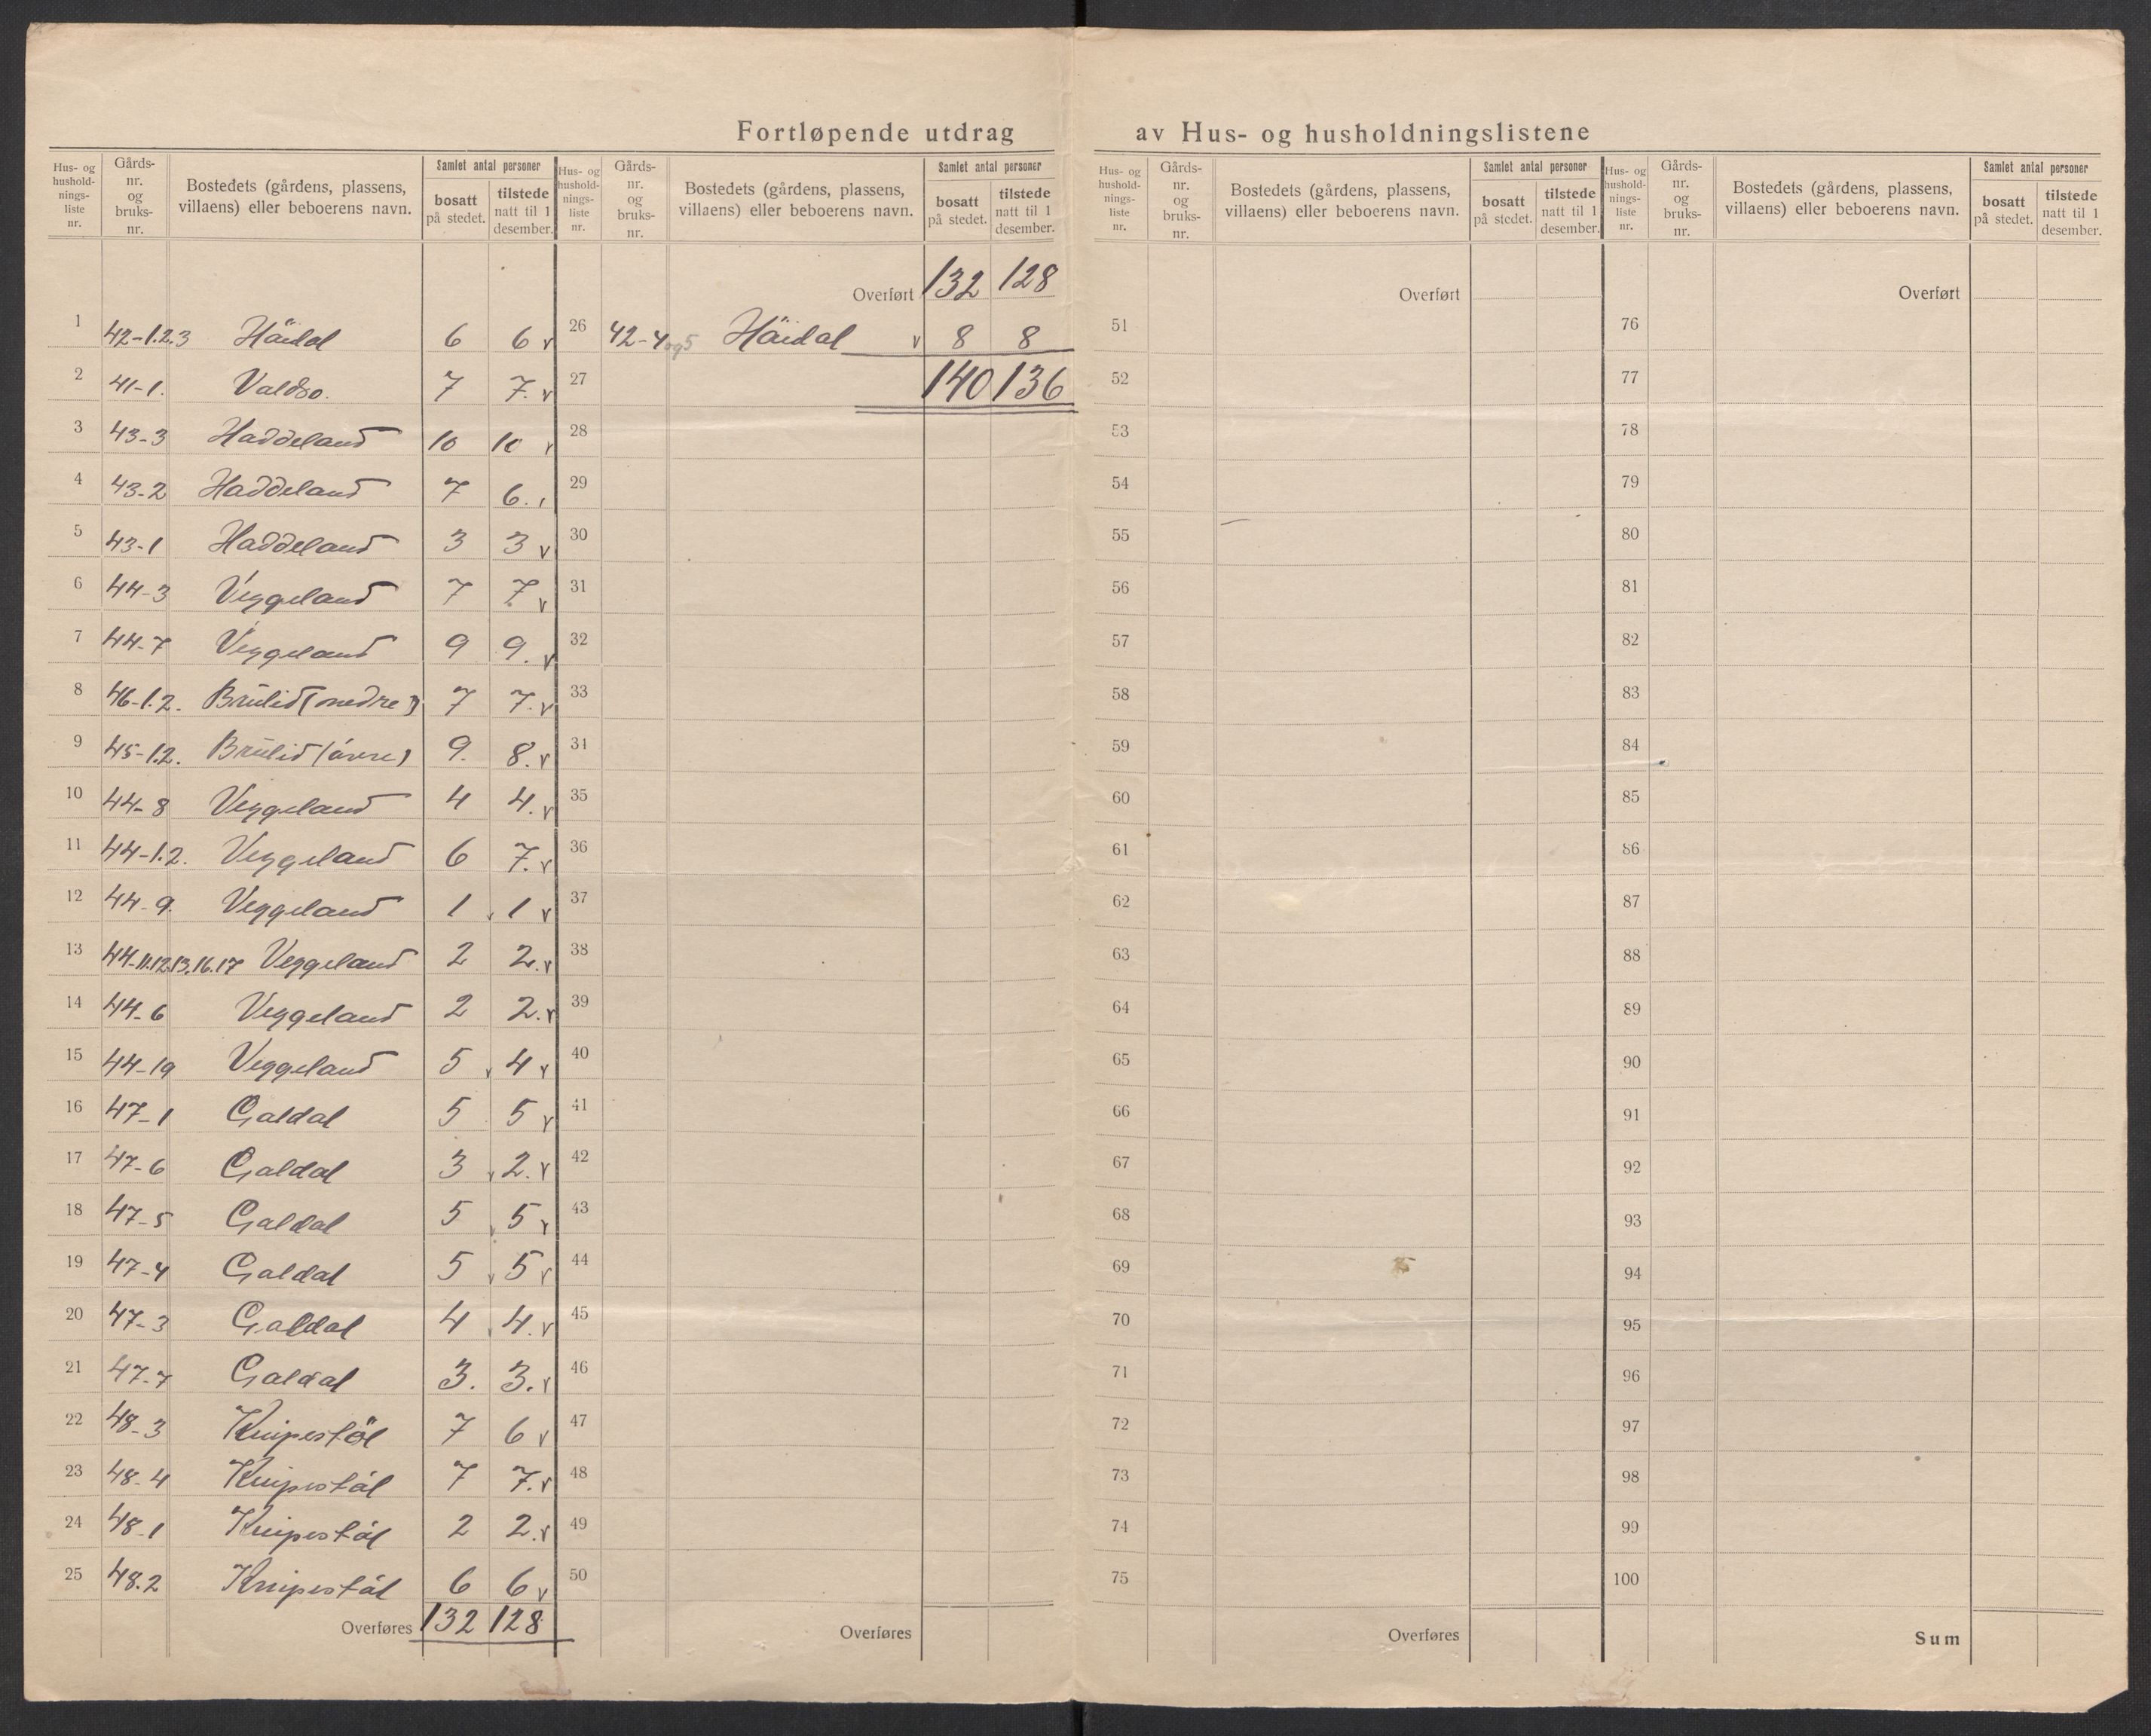 Fortløpende utdrag av Hus- og husholdningslistene
Hus- og husholdnings-liste nr. | Gårds-nr. og bruks-nr. | Bostedets (gårdens, plassens, villaens) eller beboerens navn. | Samlet antal personer | bosatt på stedet. | tilstede natt til 1 desember.
1 42-1.2.3 Häidal 6 6 v
2 41-1. Valdso. 7 7. v
3 43-3 Haddeland 10 10 v
4 43-2 Haddeland 7 6.
5 43-1 Haddeland 3 3 v
6 44-3 Veggeland 7 7. v
7 44-7 Veggeland 9 9. v
8 46-1.2. Brülid (nedre) 7 7. v
9 45-1.2. Brülid (övre) 9. 8. v
10 44-8 Veggeland 4 4. v
11 44-1.2. Veggeland 6 7. v
12 44-9. Veggeland 1 1 v
13 44-11.12.13.16.17 Veggeland 2 2. v
14 44-6 Veggeland 2 2. v
15 44-19 Veggeland 5 4 v
16 47-1 Galdal 5 5 v
17 47-6 Galdal 3 2. v
18 47-5 Galdal 5 5 v
19 47-4 Galdal 5 5 v
20 47-3 Galdal 4 4. v
21 47-7 Galdal 3. 3. v
22 48-3 Knipestöl 7 6 v
23 48-4 Knipestöl 7 7. v
24 48-1 Knipestöl 2 2. v
25 48.2 Knipestöl 6 6 v
Overføres 132 128
Hus- og husholdnings-liste nr. | Gårds-nr. og bruks-nr. | Bostedets (gårdens, plassens, villaens) eller beboerens navn. | Samlet antal personer | bosatt på stedet. | tilstede natt til 1 desember.
Overført 132 128
26 42-4 og 5 Häidal v 8 8
27 140 136
28
29
30
31
32
33
34
35
36
37
38
39
40
41
42
43
44
45
46
47
48
49
50
Overføres
Hus- og husholdnings-liste nr. | Gårds-nr. og bruks-nr. | Bostedets (gårdens, plassens, villaens) eller beboerens navn. | Samlet antal personer | bosatt på stedet. | tilstede natt til 1 desember.
Overført
51
52
53
54
55
56
57
58
59
60
61
62
63
64
65
66
67
68
69
70
71
72
73
74
75
Overføres
Hus- og husholdnings-liste nr. | Gårds-nr. og bruks-nr. | Bostedets (gårdens, plassens, villaens) eller beboerens navn. | Samlet antal personer | bosatt på stedet. | tilstede natt til 1 desember.
Overført
76
77
78
79
80
81
82
83
84
85
86
87
88
89
90
91
92
93
94
95
96
97
98
99
100
Sum